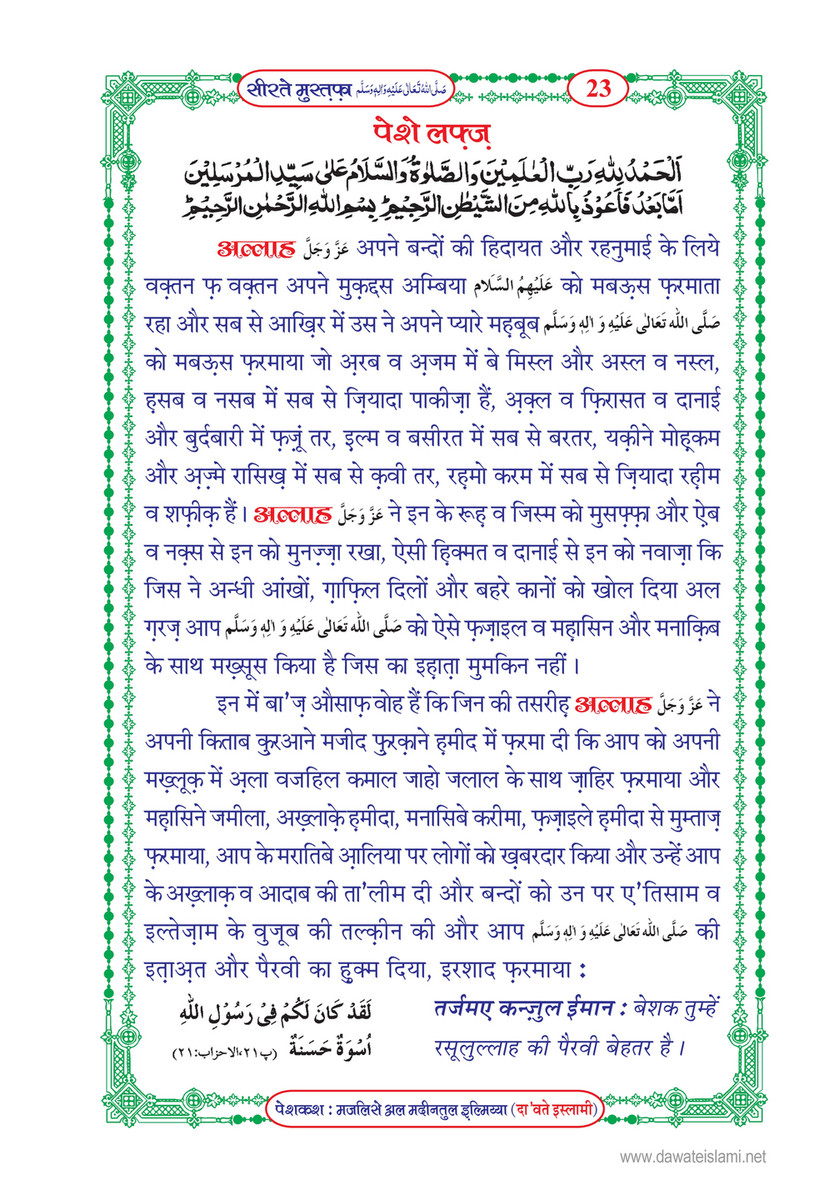 सीरते मुस्त़फ़ा صَلَّی اللہُ تَعَالٰی عَلَیْہِ وَاٰلِہٖ وَسَلَّم
23
पेशे लफ़्ज़
اَلْحَمْدُ لِلّٰہِ رَبِّ الْعٰلَمِیْنَ وَالصَّلٰوۃُ وَالسَّلَامُ عَلٰی سَیِّدِ الْمُرْسَلِیْنَ
اَمَّا بَعْدُ فَاَعُوْذُ بِاللّٰہِ مِنَ الشَّیْطٰنِ الرَّجِیْمِ ؕ بِسْمِ اللّٰہِ الرَّحْمٰنِ الرَّحِیْمِ ؕ
अल्लाह عَزَّ وَجَلَّ अपने बन्दों की हिदायत और रहनुमाई के लिये
वक़्तन फ़ वक़्तन अपने मुक़द्दस अम्बिया عَلَیْہِمُ السَّلَام को मबऊ़स फ़रमाता
रहा और सब से आख़िर में उस ने अपने प्यारे मह़बूब صَلَّی اللہ تَعَالٰی عَلَیْہِ وَ اٰلِہٖ وَسَلَّم
को मबऊ़स फ़रमाया जो अ़रब व अ़जम में बे मिस्ल और अस्ल व नस्ल,
ह़सब व नसब में सब से ज़ियादा पाकीज़ा हैं, अ़क़्ल व फ़िरासत व दानाई
और बुर्दबारी में फ़ज़ूं तर, इ़ल्म व बसीरत में सब से बरतर, यक़ीने मोह़्कम
और अ़ज़्मे रासिख़ में सब से क़वी तर, रह़मो करम में सब से ज़ियादा रह़ीम
व शफ़ीक़ हैं । अल्लाह عَزَّ وَجَلَّ ने इन के रूह़ व जिस्म को मुसफ़्फ़ा और ऐ़ब
व नक़्स से इन को मुनज़्ज़ा रखा, ऐसी ह़िक्मत व दानाई से इन को नवाज़ा कि
जिस ने अन्धी आंखों, ग़ाफ़िल दिलों और बहरे कानों को खोल दिया अल
ग़रज़ आप صَلَّی اللہ تَعَالٰی عَلَیْہِ وَ اٰلِہٖ وَسَلَّم को ऐसे फ़ज़ाइल व महा़सिन और मनाक़िब
के साथ मख़्सूस किया है जिस का इह़ात़ा मुमकिन नहीं ।
इन में बा'ज़ औसाफ़ वोह हैं कि जिन की तसरीह़ अल्लाह عَزَّ وَجَلَّ ने
अपनी किताब क़ुरआने मजीद फ़ुरक़ाने ह़मीद में फ़रमा दी कि आप को अपनी
मख़्लूक़ में अ़ला वजहिल कमाल जाहो जलाल के साथ ज़ाहिर फ़रमाया और
मह़ासिने जमीला, अख़्लाक़े ह़मीदा, मनासिबे करीमा, फ़ज़ाइले ह़मीदा से मुम्ताज़
फ़रमाया, आप के मरातिबे आ़लिया पर लोगों को ख़बरदार किया और उन्हें आप
के अख़्लाक़ व आदाब की ता'लीम दी और बन्दों को उन पर ए'तिसाम व
इल्तेज़ाम के वुजूब की तल्क़ीन की और आप صَلَّی اللہ تَعَالٰی عَلَیْہِ وَ اٰلِہٖ وَسَلَّم की
इत़ाअ़त और पैरवी का हु़क्म दिया, इरशाद फ़रमाया :
لَقَدْ كَانَ لَكُمْ فِیْ رَسُوْلِ اللّٰہِ
اُسْوَۃٌ حَسَنَۃٌ (پ۲۱،الاحزاب:۲۱)
तर्जमए कन्ज़ुल ईमान : बेशक तुम्हें
रसूलुल्लाह की पैरवी बेहतर है ।
पेशकश : मजलिसे अल मदीनतुल इ़ल्मिय्या (दा'वते इस्लामी)
www.dawateislami.net